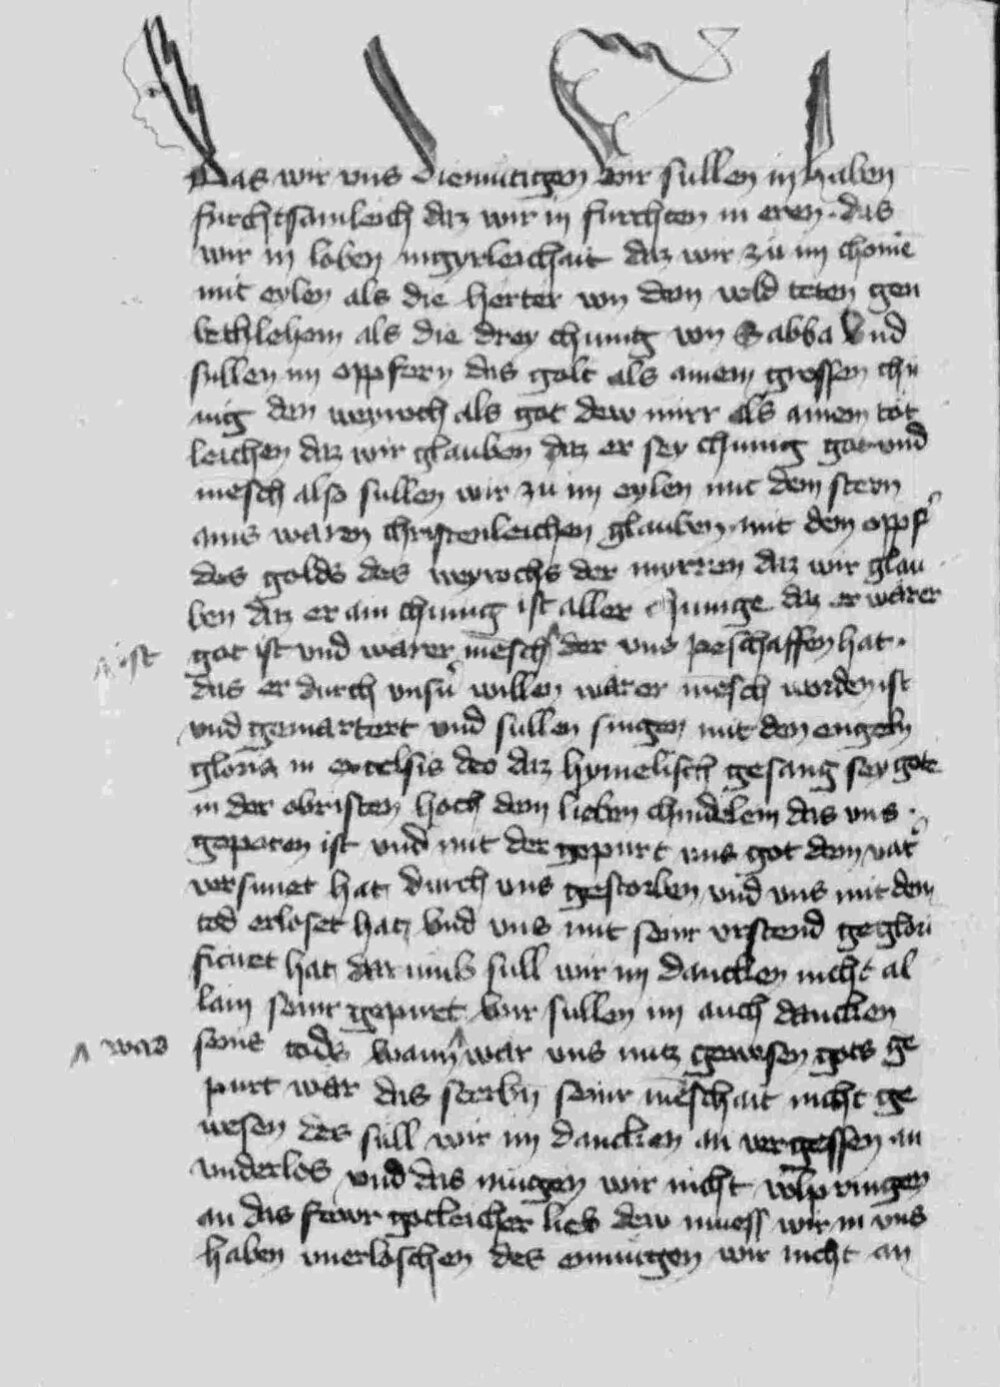 Das wir uns diemutigen wir sullen in haben
furchtsamleich daz wir in furchten in eren · das
wir in loben daz wir zu im chomē
mit eylen als die herter von dem veld teten gen
bethlehem als die drey chunig von Sabba Und
sullen im oppfern das golt als ainem grossen chu
nig den weyroch als got dew mirr als ainem tot
leichen daz wir glauben daz er sey chunig got und
mēsch also sullen wir zu im eylen mit dem stern
ains waren christenleichen glauben · mit dem oppf̛
des golds des weyrochs der myrren daz wir glau
ben daz er ain chunig ist aller chunige daz er warer
got ist und warer mēsch ^ der uns peschaffen hat ·
^ ist
das er durch unsn̄ willen warer mēsch worden ist
und gemartert und sullen singen mit den engeln
gloria in excelsis deo daz hymelisch gesang sey gote
in der obristen hoch dem lieben chindelein das uns ·
geporen ist und mit der gepurt uns got dem vat̛
versunet hat durch uns gestorben und uns mit dem
tod erloset hat Und uns mit seinr urstend geglori
ficiret hat darumb sull wir im dancken nicht al
lain seinr gepurt wir sullen im auch dancken
seins tods wann ^ war uns nutz gewesen gots ge
^ was
purt wār das sterbn̄ seinr mēschait nicht ge
wesen des sull wir im dancken an vergessen an
underlos und das mugen wir nicht volpringen
an das fewr gotleicher lieb dew muess wir in uns
haben unerloschen des wir nicht an